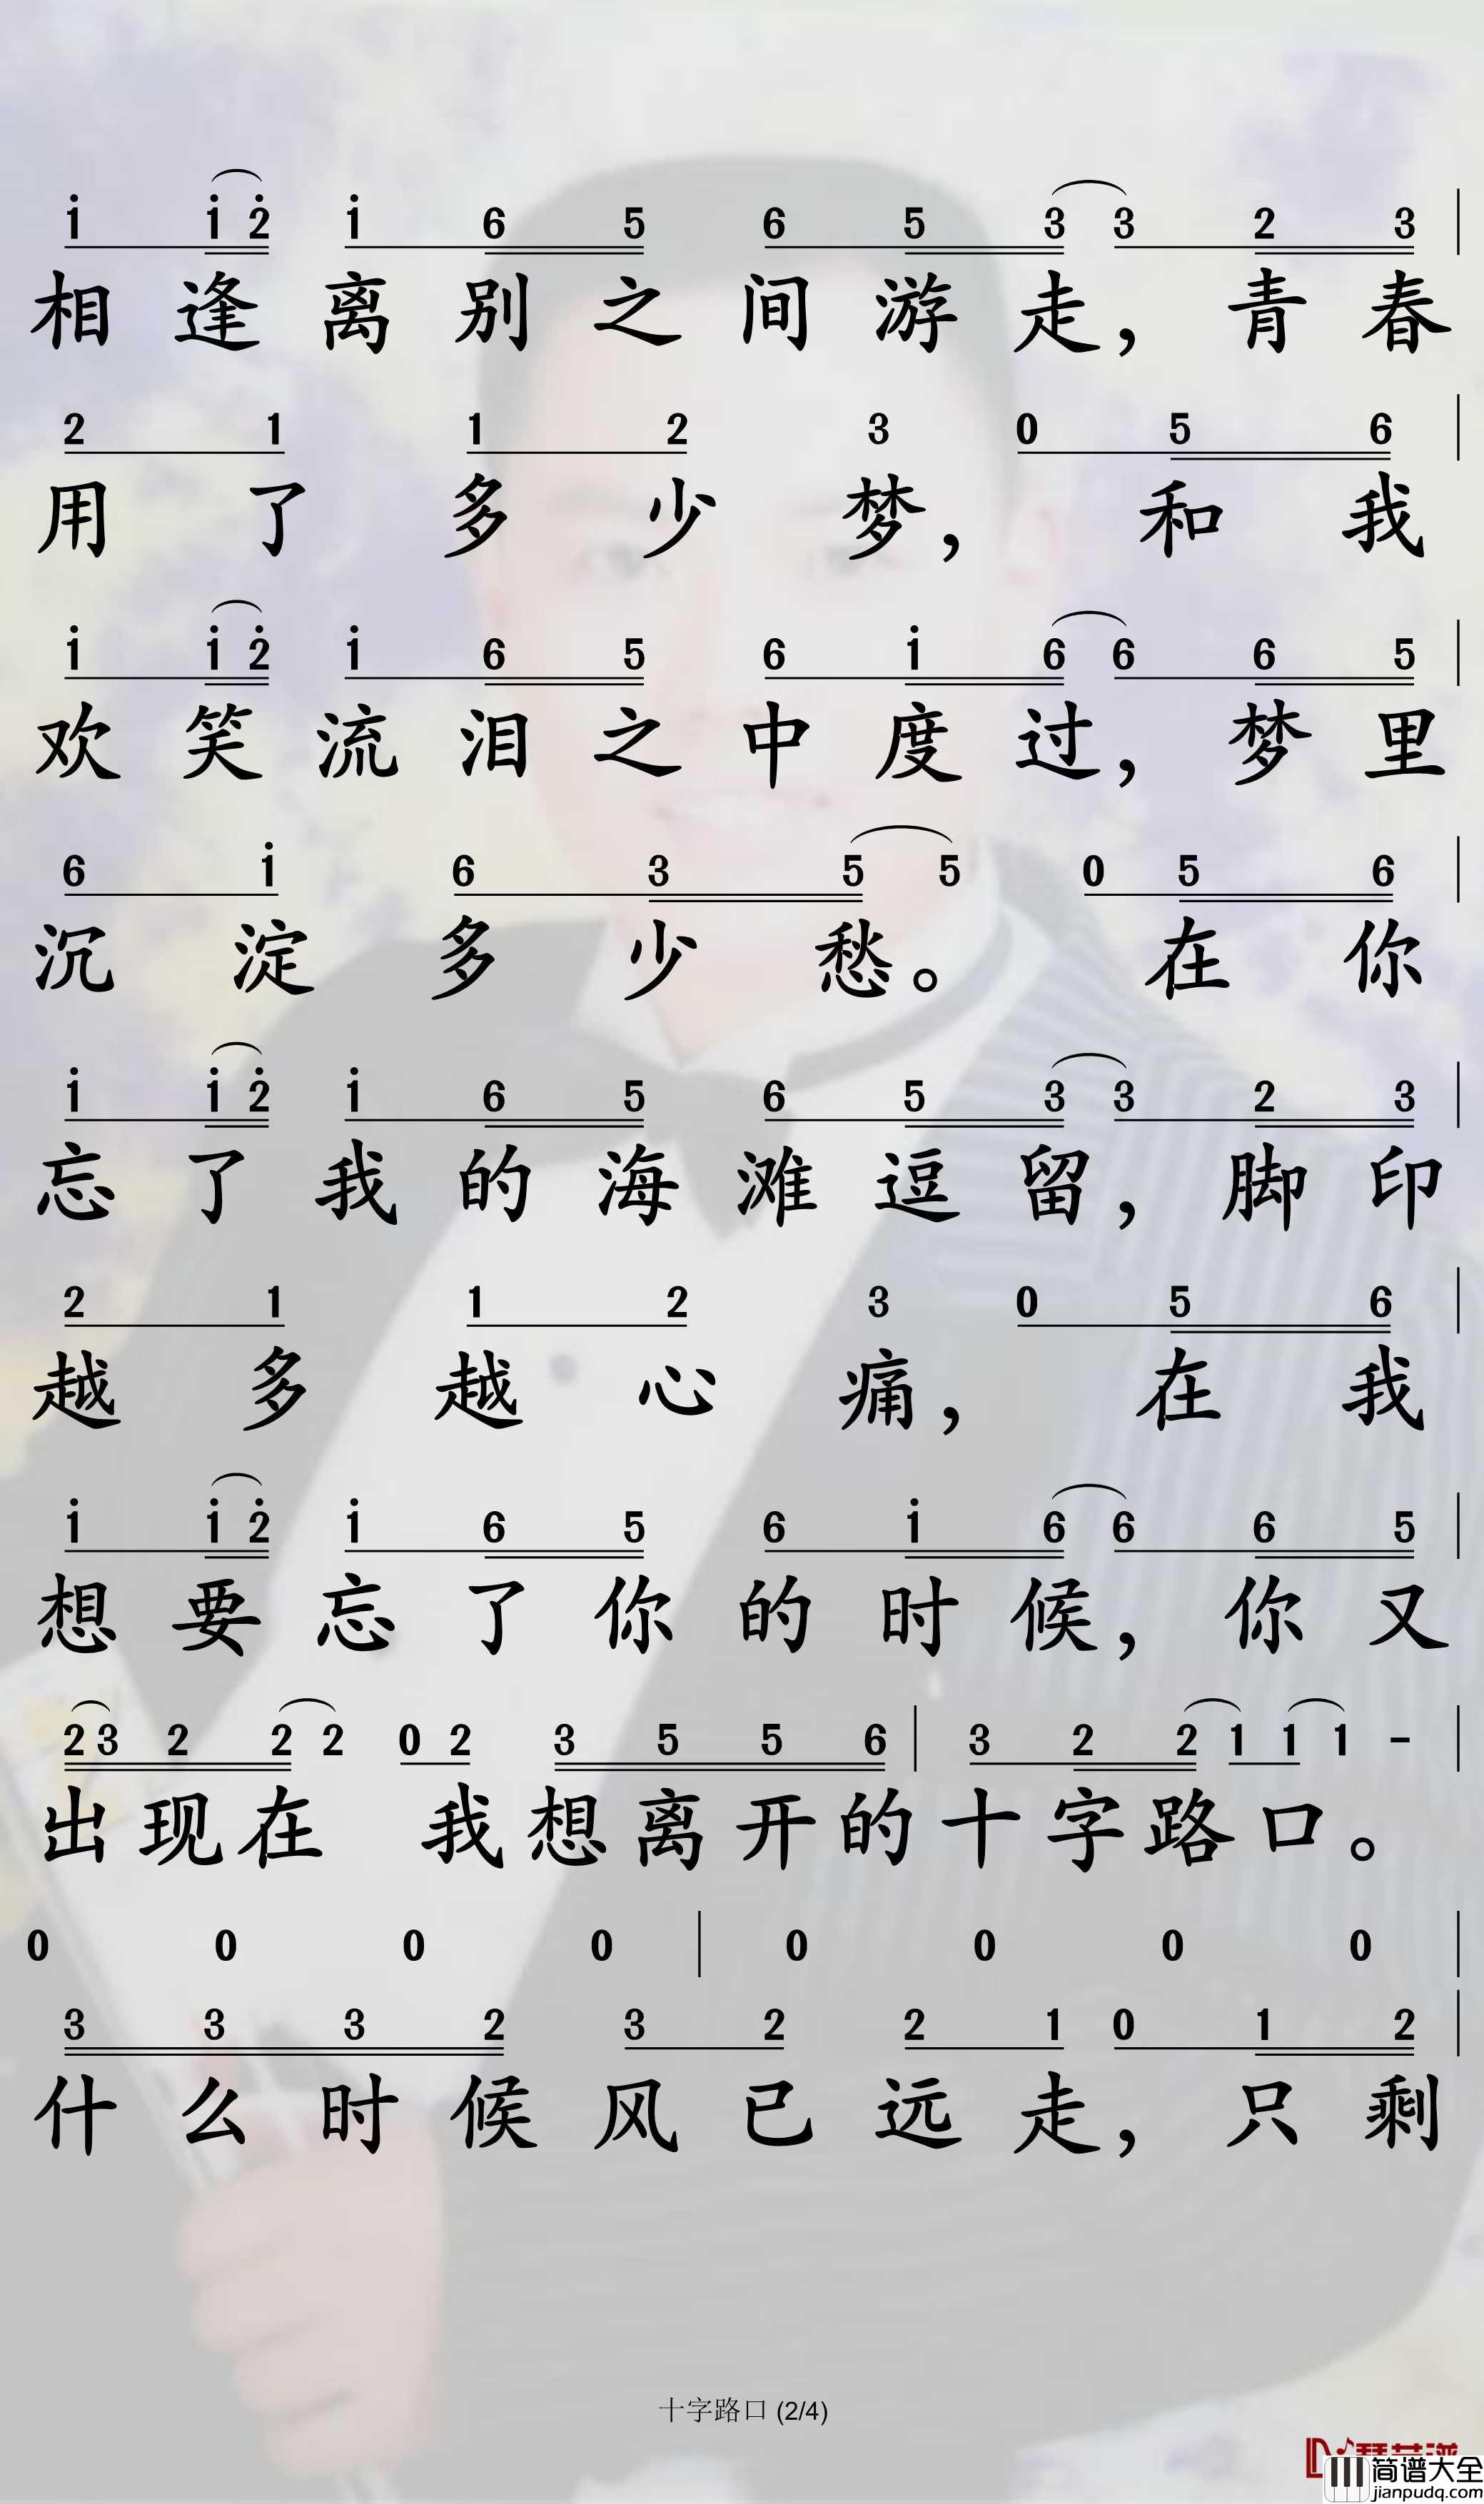 i i 2 i 6 5 6 5 3 3 2 3
相逢离别之间游走，青春
2 1 1 2 3 0 5 6
用了多少梦，和我
i i 2 i 6 5 6 i 6 6 6 5
欢笑流泪之中度过，梦里
6 i 6 3 5 5 0 5 6
沉淀多少愁。在你
i i 2 i 6 5 6 5 3 3 2 3
忘了我的海滩逗留，脚印
2 1 1 2 3 0 5 6
越多越心痛，在我
i i 2 i 6 5 6 i 6 6 6 5
想要忘了你的时候，你又
2 3 2 2 2 0 2 3 5 5 6 | 3 2 2 1 1 1 -
出现在 我想离开的十字路口。
0 0 0 0 | 0 0 0 0
3 3 3 2 3 2 2 1 0 1 2
什么时候风已远走，只剩
十字路口 (2/4)
简谱大全
jianpudq.com